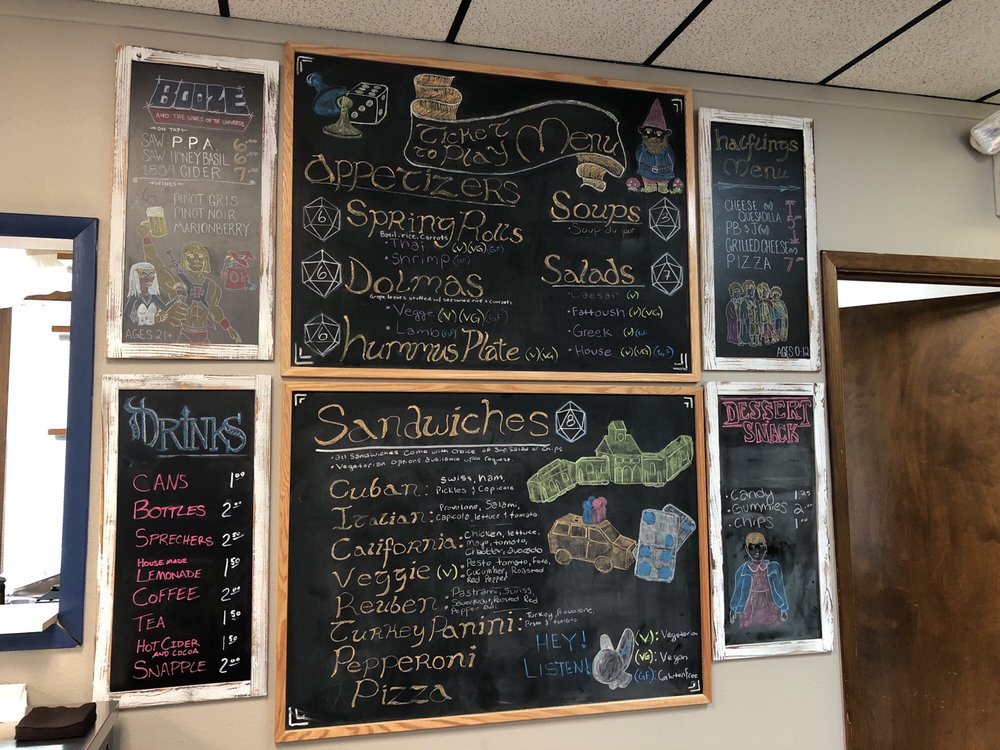 BOOZE
AND THE WINES OF THE UNIVERSE
ON TAP
SAW PPA 6.00
SAW HONEY BASIL 6.00
1859 CIDER 7.00
WINES
PINOT GRIS
PINOT NOIR
MARIONBERRY
AGES 21+
TICKET TO PLAY MENU
APPETIZERS
6 SPRING ROLLS
Basil, rice, carrots
• Thai (V) (VG) (GF)
• Shrimp (GF)
6 DOLMAS
Grape leaves stuffed w/ seasoned rice & currants
• Veggie (V) (VG) (GF)
• Lamb (GF)
HUMMUS PLATE (V) (VG)
SOUPS
• Soup du jour
SALADS 7
• Caesar (V)
• Fattoush (V) (VG)
• Greek (V) (GF)
• House (V) (VG) (GF)
Halflings Menu
CHEESE (V) QUESADILLA
PB & J (V)
GRILLED CHEESE (V)
PIZZA 7
AGES 0-12
DRINKS
CANS 1.00
BOTTLES
SPRECHERS
HOUSE MADE
LEMONADE 1.50
COFFEE 2.00
TEA 1.50
HOT CIDER AND COCOA 1.50
SNAPPLE 2.00
SANDWICHES
• All Sandwiches come with choice of Soup, Salad or Chips
• Vegetarian options available upon request.
Cuban: Swiss, ham, Pickles & Capicola
Italian: Provolone, Salami, Capicola, lettuce & tomato
California: Chicken, lettuce, Mayo, tomato, Cheddar, avocado
Veggie (V): Pesto, tomato, Feta, Cucumber, Roasted Red Pepper
Reuben: Pastrami, Swiss, Sauerkraut, Roasted Red Pepper
Turkey Panini: Turkey, Provolone, Pesto & tomato
Pepperoni Pizza
HEY! LISTEN!
(V): Vegetarian
(VG): Vegan
(GF): Gluten Free
DESSERT SNACK
• Candy 1.25
• Gummies 2.00
• Chips 1.00